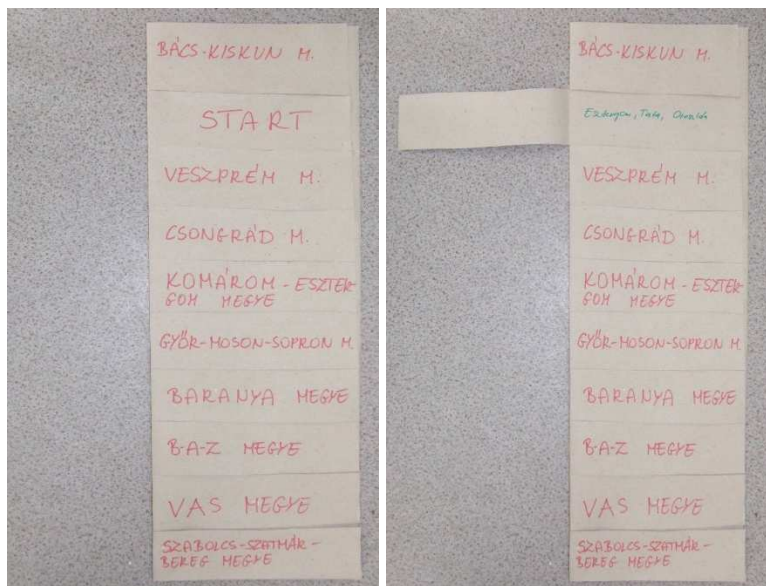 BÁCS-KISKUN M.
START
VESZPRÉM M.
CSONGRÁD M.
KOMÁROM-ESZTER-
GOM MEGYE
GYŐR-MOSON-SOPRON M.
BARANYA MEGYE
B-A-Z MEGYE
VAS MEGYE
SZABOLCS-SZATMÁR-
BEREG MEGYE
BÁCS-KISKUN M.
Esztergom, Tata, Oroszlány
VESZPRÉM M.
CSONGRÁD M.
KOMÁROM-ESZTER-
GOM MEGYE
GYŐR-MOSON-SOPRON M.
BARANYA MEGYE
B-A-Z MEGYE
VAS MEGYE
SZABOLCS-SZATMÁR-
BEREG MEGYE